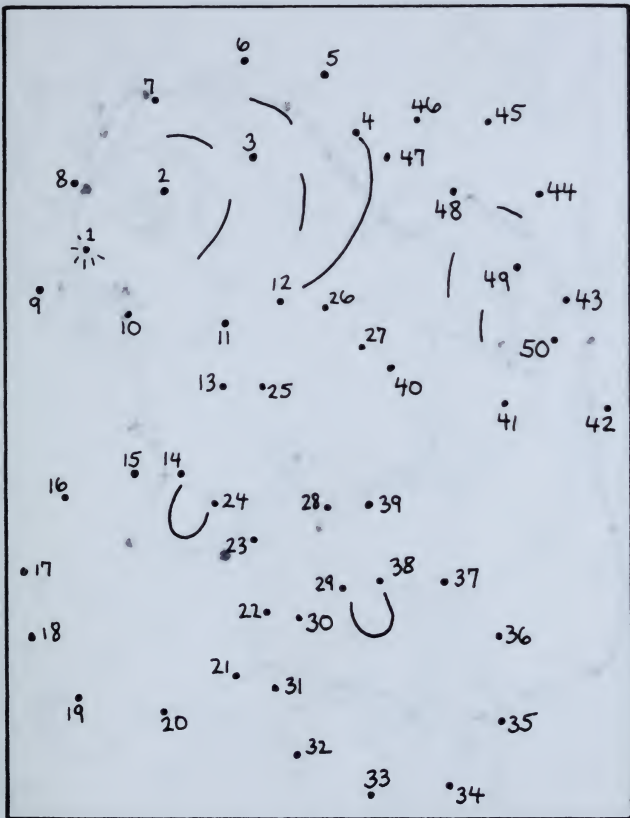 6
5
7
4
46
45
3
47
8
2
48
44
1
49
9
12
26
43
10
11
27
50
13
25
40
41
42
15
14
16
24
28
39
23
17
38
29
37
22
30
18
36
21
31
19
20
35
32
33
34